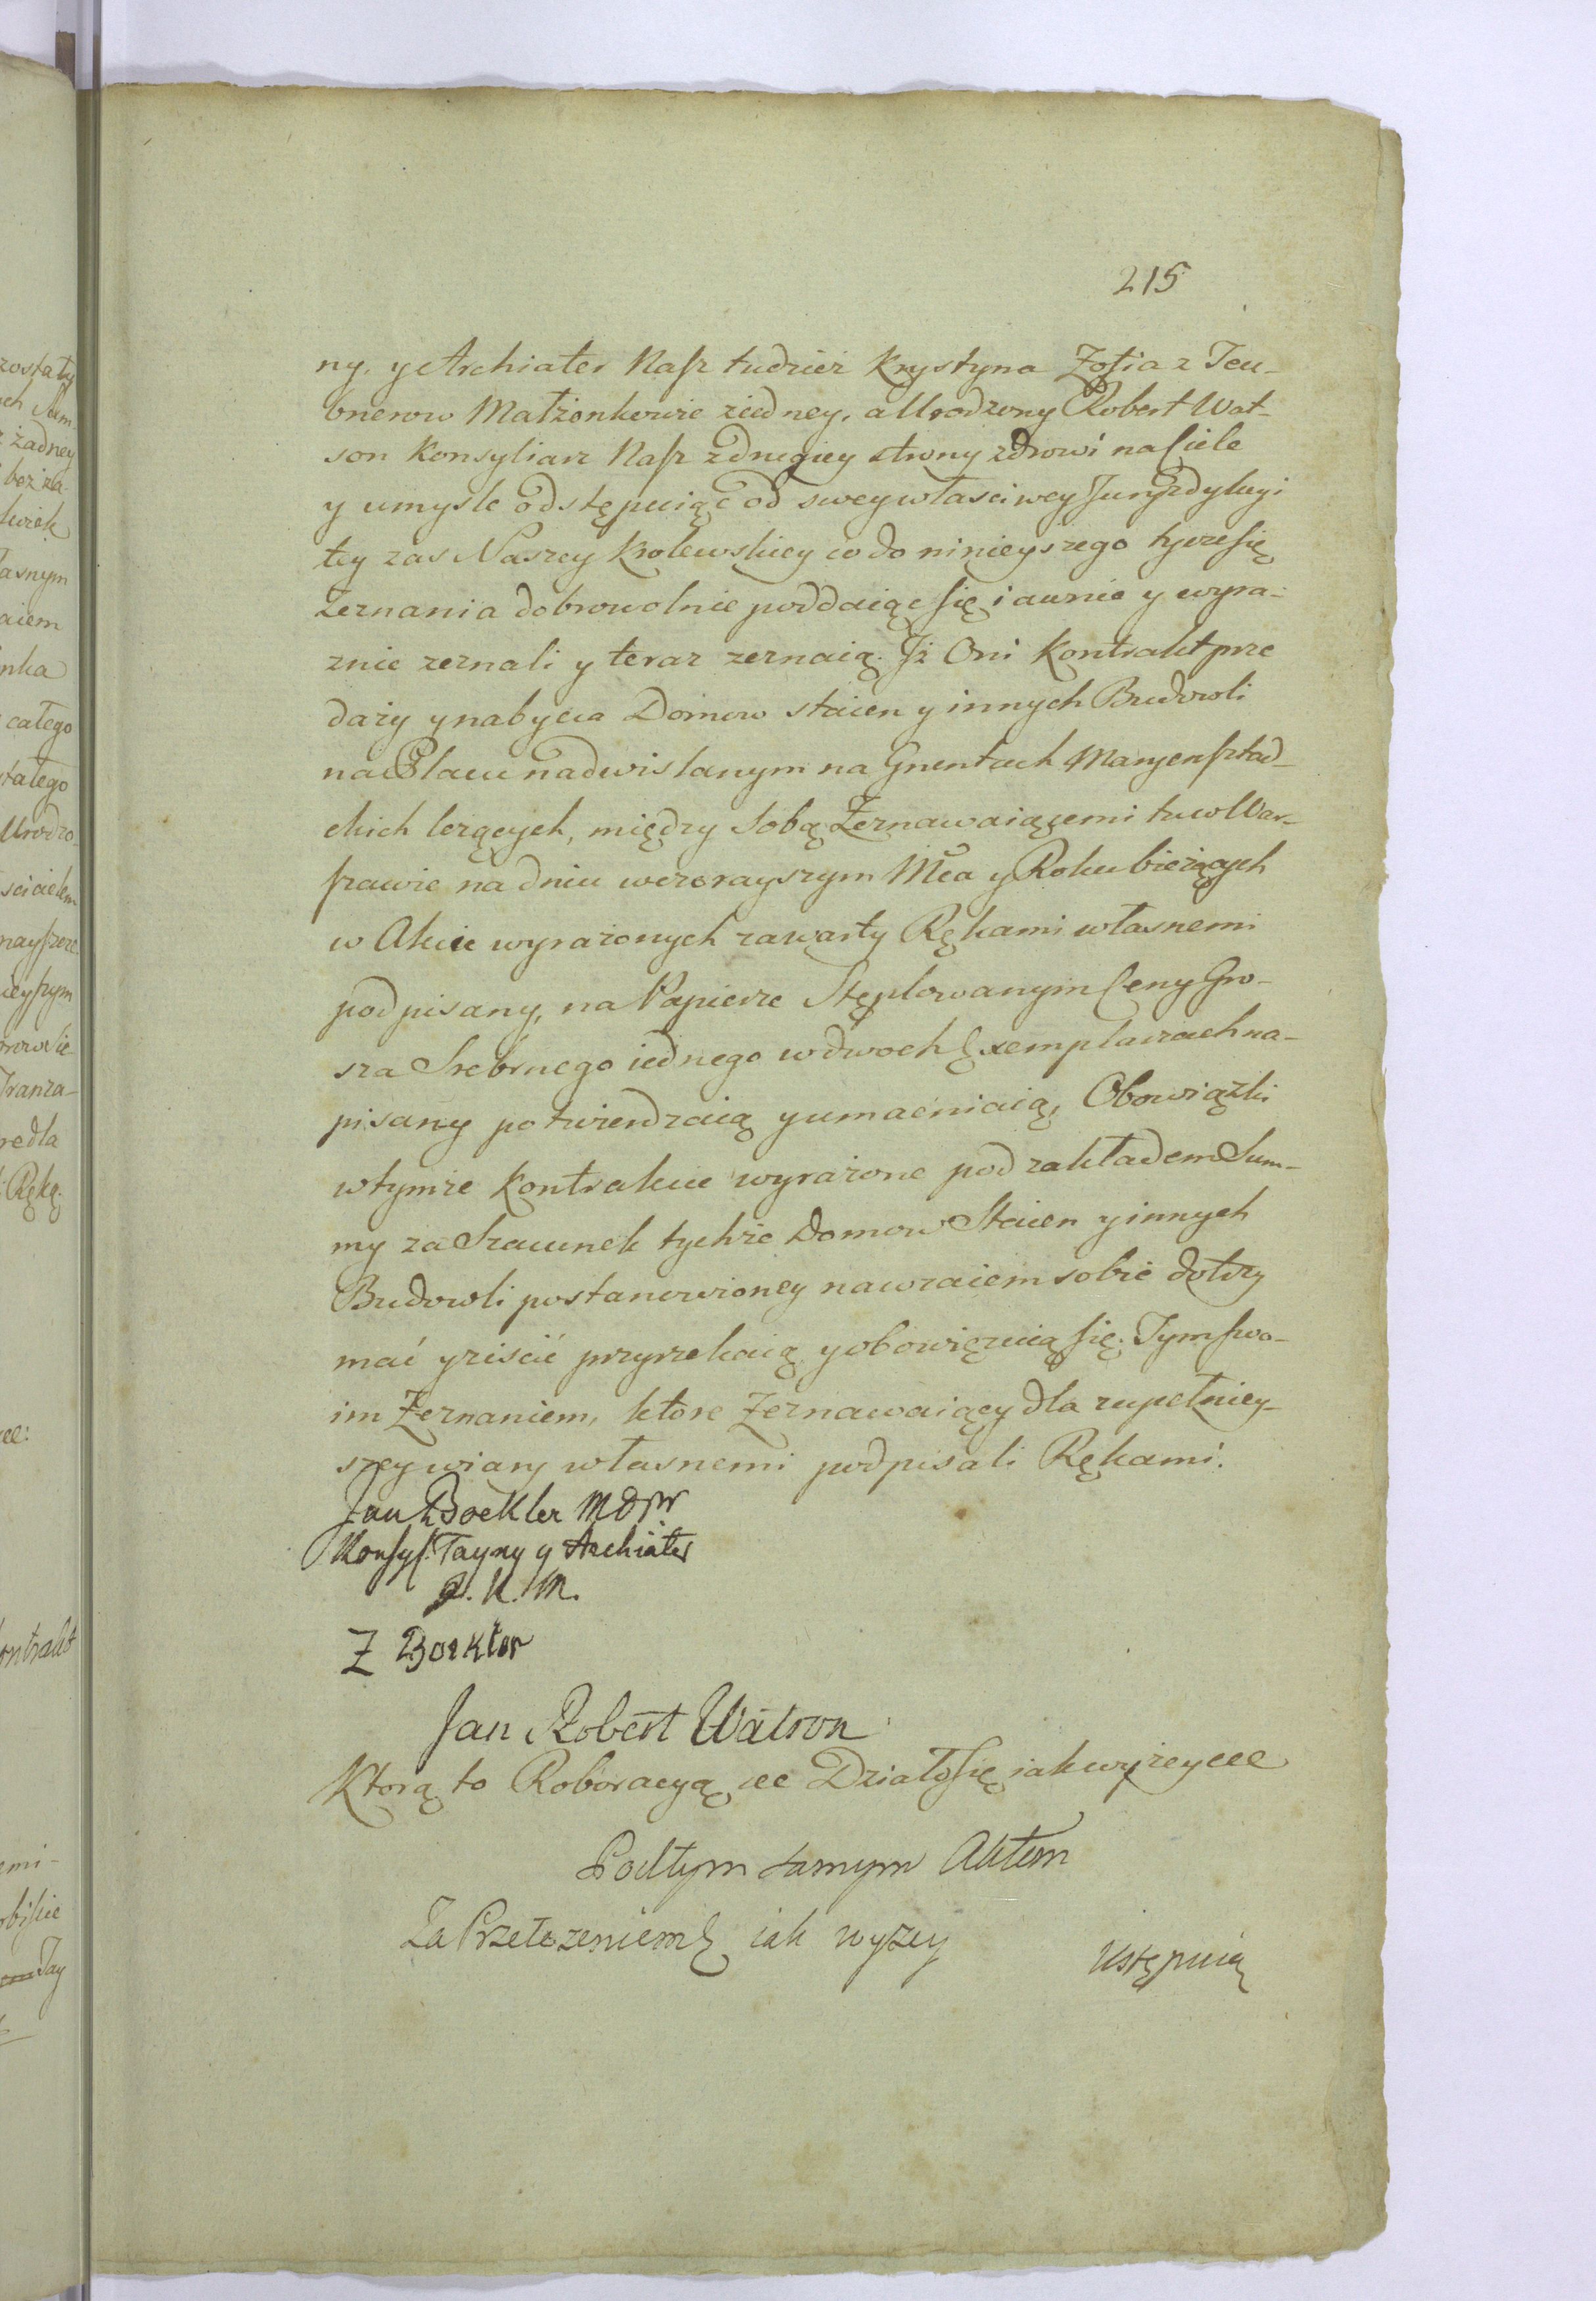 215
ny. y Archiater Nasz tudzież Krystyna Zofia z Teu-
bnerow Małżonkowie ziedney, a Urodzony Robert Wat-
son Konsyliarz Nasz zdrugiey strony zdrowi na Ciele
y umysle odstępuiąc od swey własciwey Juryzdykcyi
tey zas Naszey Krolewskiey co do ninieyszego tycze się
Zeznania dobrowolnie poddaiąc się iawnie y wyra-
znie zeznali y teraz zeznaią. Jż Oni Kontrakt prze
daży y nabycia Domow staien y innych Budowli
na Placu nadwislanym na Gruntach Maryensztad-
ckich leżących, między Sobą Zeznawaiącemi tu w War-
szawie na dniu wczorayszym Mca y Roku bieżących
w Akcie wyrażonych zawarty Rękami własnemi
podpisany, na Papierze Stęplowanym Ceny Gro-
sza Srebrnego iednego w dwoch Exemplarzach na-
pisany potwierdzaią y umacniaią, Obowiązki
w tymże Kontrakcie wyrażone pod zakładem Sum-
my za Szacunek tychże Domow Staien y innych
Budowli postanowioney nawzaiem sobie dotrzy
mać y ziscić przyrzekaią y obowięzuią się. Tym swo-
im Zeznaniem, ktore Zeznawaiący dla zupełniey-
szey wiary własnemi podpisali Rękami.
Jan Boekler MDpr
Konsyl: Tayny y Archiater
J. K. M.
Z Boekler
Jan Robert Watson
Ktorą to Roboracyą &c Działo się iak wyżey &c
Pod tym samym Aktem
Za Przełożeniem iak wyżey
Ustępuią